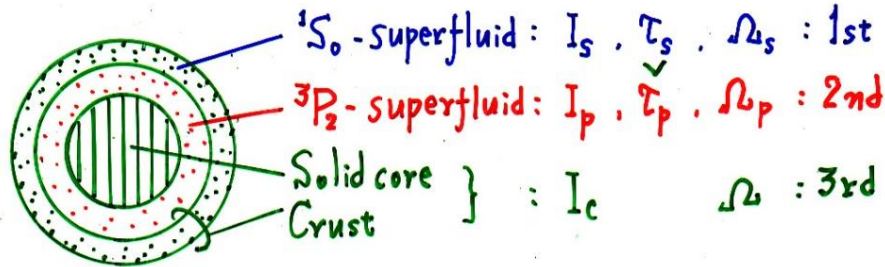 ¹S₀-superfluid : I_s , τ_s , Ω_s : 1st
³P₂-superfluid : I_p , τ_p , Ω_p : 2nd
Solid core
Crust } : I_c Ω : 3rd